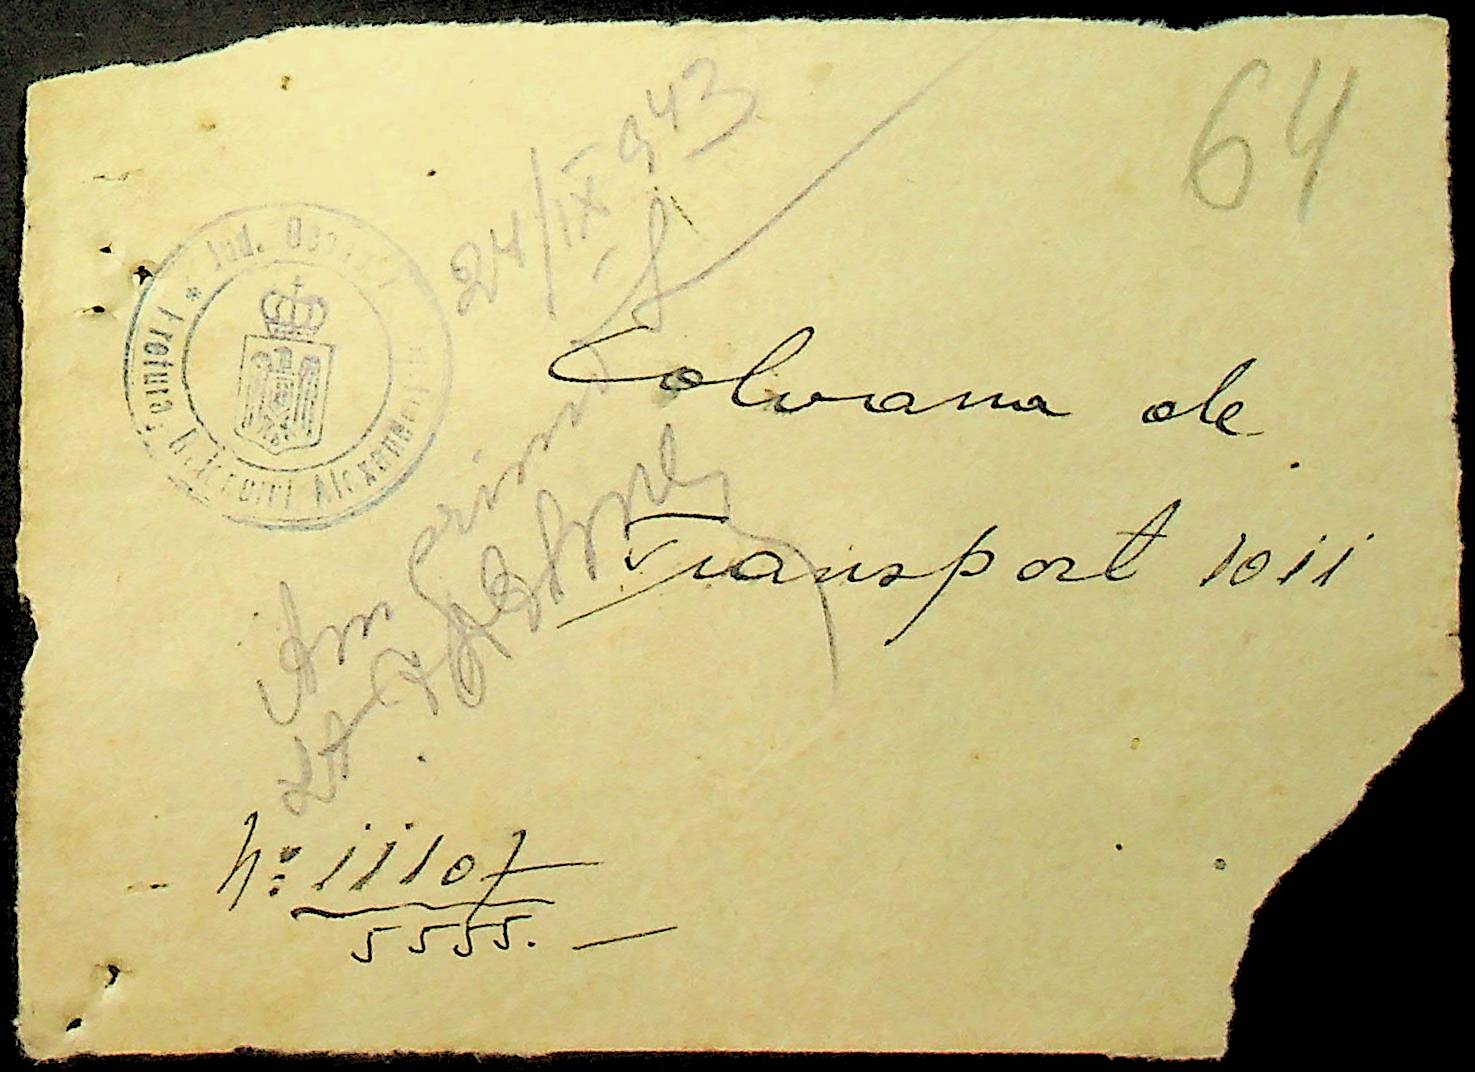 64
24/IX 943
Coloana de
Transport 1011
Am primit
No: 11107
5555.
* Jud.
Alexandr